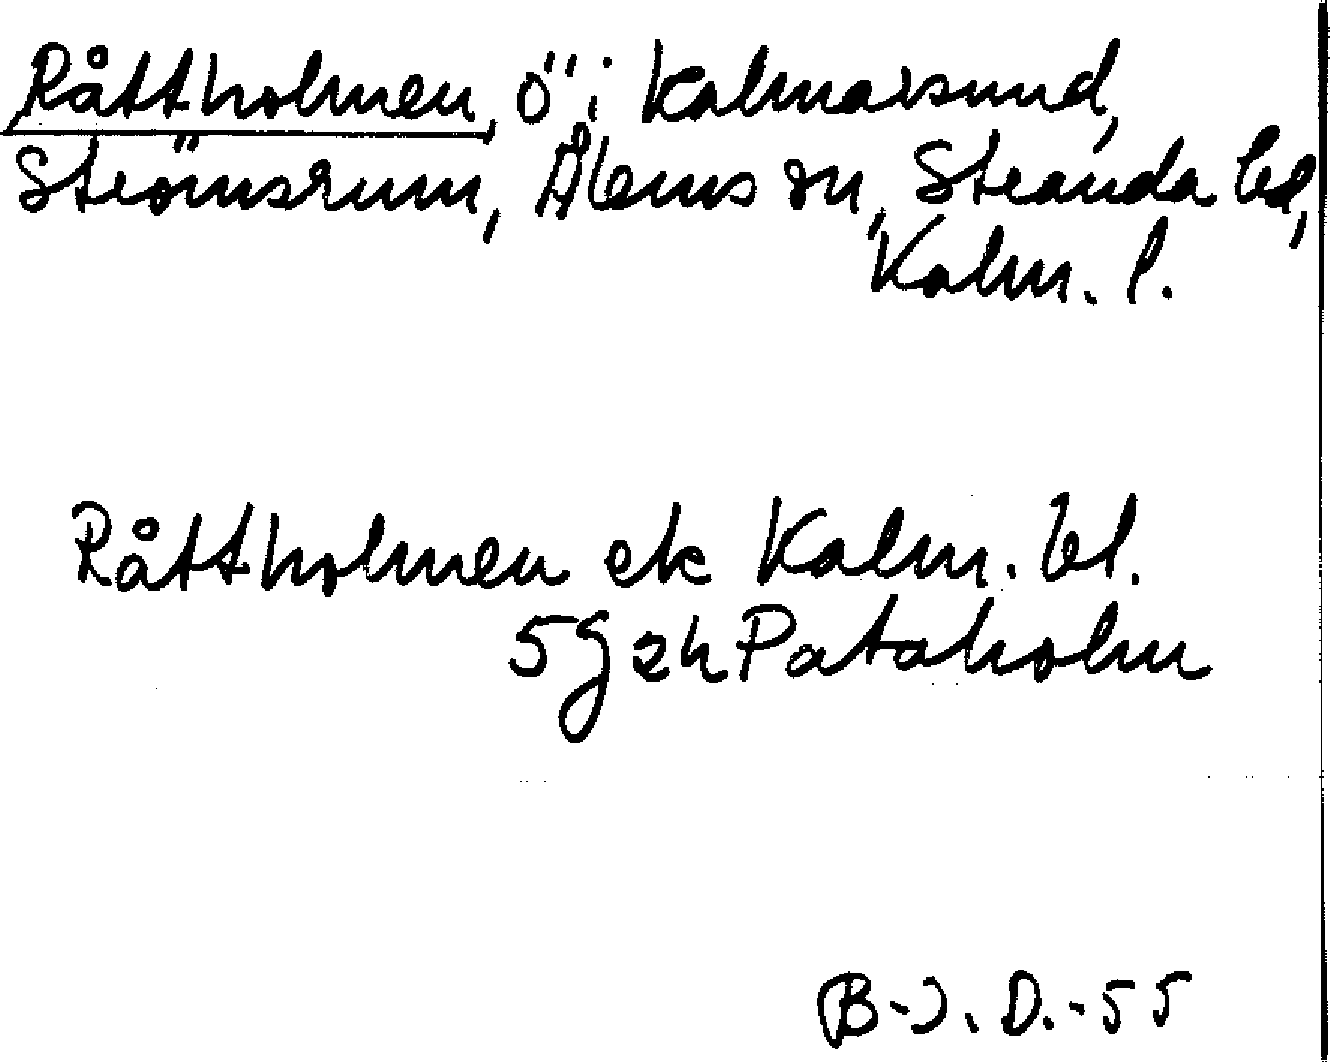 Råttholmen, ö i Kalmarsund,
Strömsrum, Ålems sn, Stranda hd,
Kalm. l.
Råttholmen ek Kalm. bl.
5g 2h Pataholm
B-J. D.-55